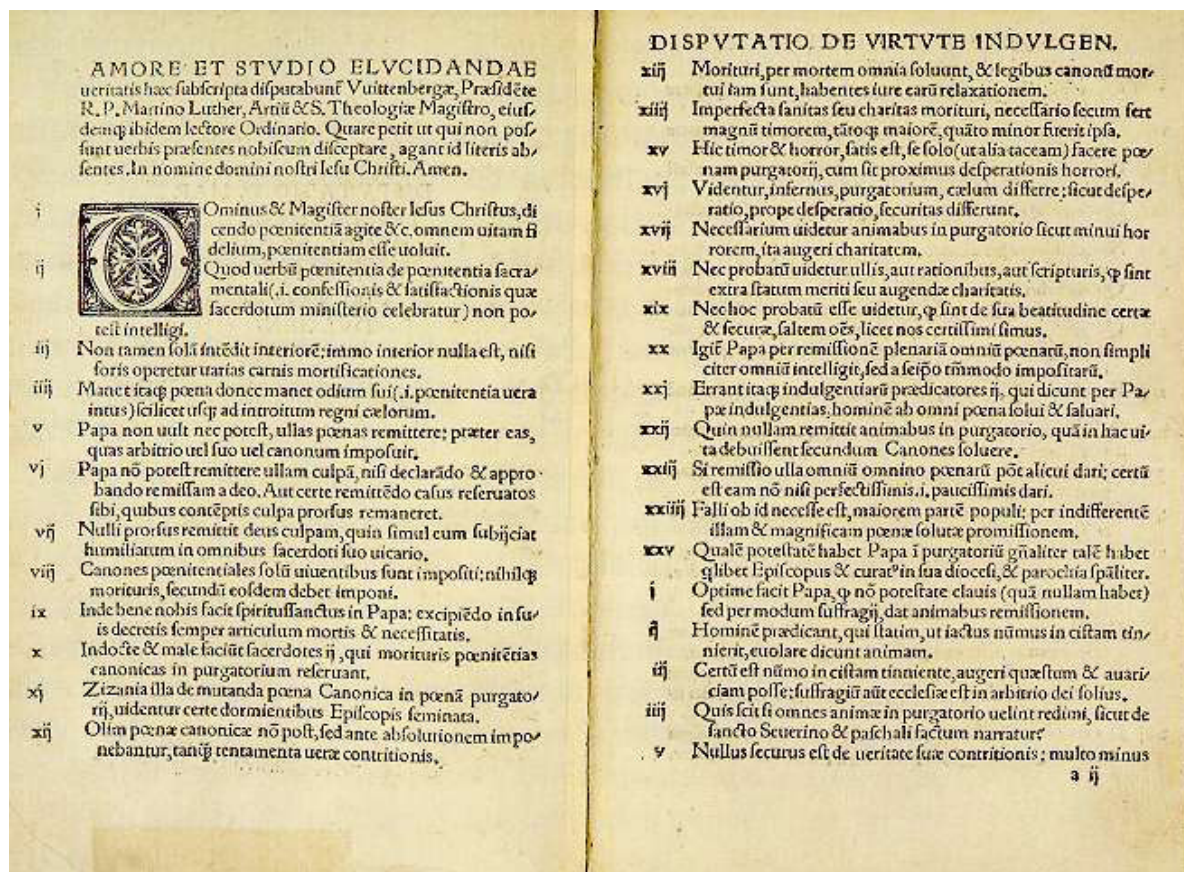 AMORE ET STVDIO ELVCIDANDAE
ueritatis hæc subscripta disputabunt Vuittenbergæ, Præsidẽte
R. P. Martino Luther, Artiũ & S. Theologiæ Magistro, eius/
demq; ibidem lectore Ordinario. Quare petit ut qui non pos/
sunt uerbis præsentes nobiscum disceptare, agant id literis ab/
sentes. In nomine domini nostri Iesu Christi. Amen.
i DOminus & Magister noster Iesus Christus, di
cendo pœnitentiã agite &c. omnem uitam fi
delium, pœnitentiam esse uoluit.
ij Quod uerbũ pœnitentia de pœnitentia sacra/
mentali (.i. confessionis & satisfactionis quæ
sacerdotum ministerio celebratur) non po/
test intelligi.
iij Non tamen solã intẽdit interiorẽ: immo interior nulla est, nisi
foris operetur uarias carnis mortificationes.
iiij Manet itaq; pœna donec manet odium sui (.i. pœnitentia uera
intus) scilicet usq; ad introitum regni cælorum.
v Papa non uult nec potest, ullas pœnas remittere: præter eas,
quas arbitrio uel suo uel canonum imposuit.
vj Papa nõ potest remittere ullam culpã, nisi declarãdo & appro
bando remissam a deo. Aut certe remittẽdo casus reseruatos
sibi, quibus contẽptis culpa prorsus remaneret.
vij Nulli prorsus remittit deus culpam, quin simul eum subijciat
humiliatum in omnibus sacerdoti suo uicario.
viij Canones pœnitentiales solũ uiuentibus sunt impositi: nihilq;
morituris, secundũ eosdem debet imponi.
ix Inde bene nobis facit spiritussanctus in Papa: excipiẽdo in su/
is decretis semper articulum mortis & necessitatis.
x Indocte & male faciũt sacerdotes ij, qui morituris pœnitẽtias
canonicas in purgatorium reseruant.
xj Zizania illa de mutanda pœna Canonica in pœnã purgato/
rij, uidentur certe dormientibus Episcopis seminata.
xij Olim pœnæ canonicæ nõ post, sed ante absolutionem impo/
nebantur, tanq̃ tentamenta ueræ contritionis.
DISPVTATIO DE VIRTVTE INDVLGEN.
xiij Morituri, per mortem omnia soluunt, & legibus canonũ mor/
tui iam sunt, habentes iure earũ relaxationem.
xiiij Imperfecta sanitas seu charitas morituri, necessario secum fert
magnũ timorem, tãtoq; maiorẽ, quãto minor fuerit ipsa.
xv Hic timor & horror, satis est, se solo (ut alia taceam) facere pœ/
nam purgatorij, cum sit proximus desperationis horrori.
xvj Videntur, infernus, purgatorium, cælum differre: sicut despe/
ratio, prope desperatio, securitas differunt.
xvij Necessarium uidetur animabus in purgatorio sicut minui hor
rorem, ita augeri charitatem.
xviij Nec probatũ uidetur ullis, aut rationibus, aut scripturis, ꝙ sint
extra statum meriti seu augendæ charitatis.
xix Nec hoc probatũ esse uidetur, ꝙ sint de sua beatitudine certæ
& securæ, saltem oẽs, licet nos certissimi simus.
xx Igit̃ Papa per remissionẽ plenariã omniũ pœnarũ, non simpli
citer omniũ intelligit, sed a seipo tm̃modo impositarũ.
xxj Errant itaq; indulgentiarũ prædicatores ij, qui dicunt per Pa/
pæ indulgentias, hominẽ ab omni pœna solui & saluari.
xxij Quin nullam remittit animabus in purgatorio, quã in hac ui/
ta debuissent secundum Canones soluere.
xxiij Si remissio ulla omniũ omnino pœnarũ põt alicui dari: certũ
est eam nõ nisi perfectissimis .i. paucissimis dari.
xxiiij Falli ob id necesse est, maiorem partẽ populi: per indifferentẽ
illam & magnificam pœnæ solutæ promissionem.
xxv Qualẽ potestatẽ habet Papa ĩ purgatoriũ gñaliter talẽ habet
qlibet Episcopus & curatꝰ in sua diocesi, & parochia spãliter.
j Optime facit Papa, ꝙ nõ potestate clauis (quã nullam habet)
sed per modum suffragij, dat animabus remissionem.
ij Hominẽ prædicant, qui statim, ut iactus nũmus in cistam tin/
nierit, euolare dicunt animam.
iij Certũ est nũmo in cistam tinniente, augeri quæstum & auari/
ciam posse: suffragiũ aũt ecclesiæ est in arbitrio dei solius.
iiij Quis scit si omnes animæ in purgatorio uelint redimi, sicut de
sancto Seuerino & paschali factum narratur?
v Nullus securus est de ueritate suæ contritionis: multo minus
a ij